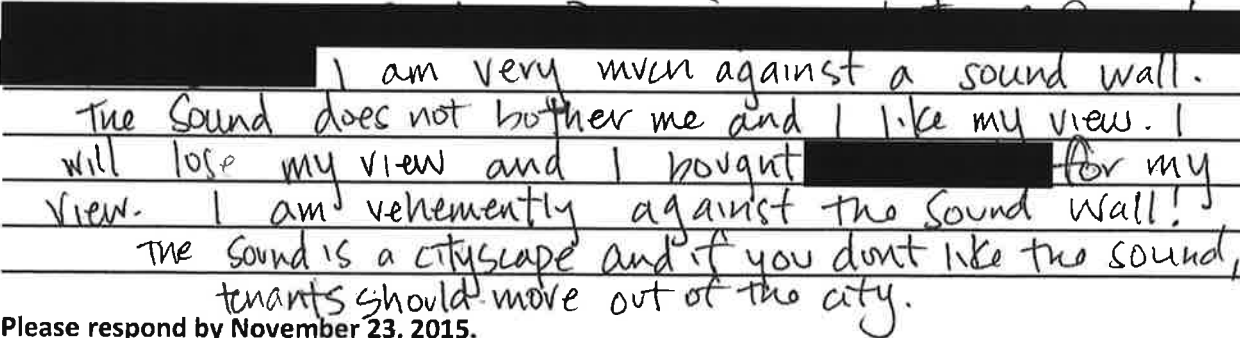 I am very much against a sound wall.
The Sound does not bother me and I like my view. I
will lose my view and I bought for my
view. I am vehemently against the sound wall!
The sound is a cityscape and if you dont like the sound,
tenants should move out of the city.
Please respond by November 23, 2015.